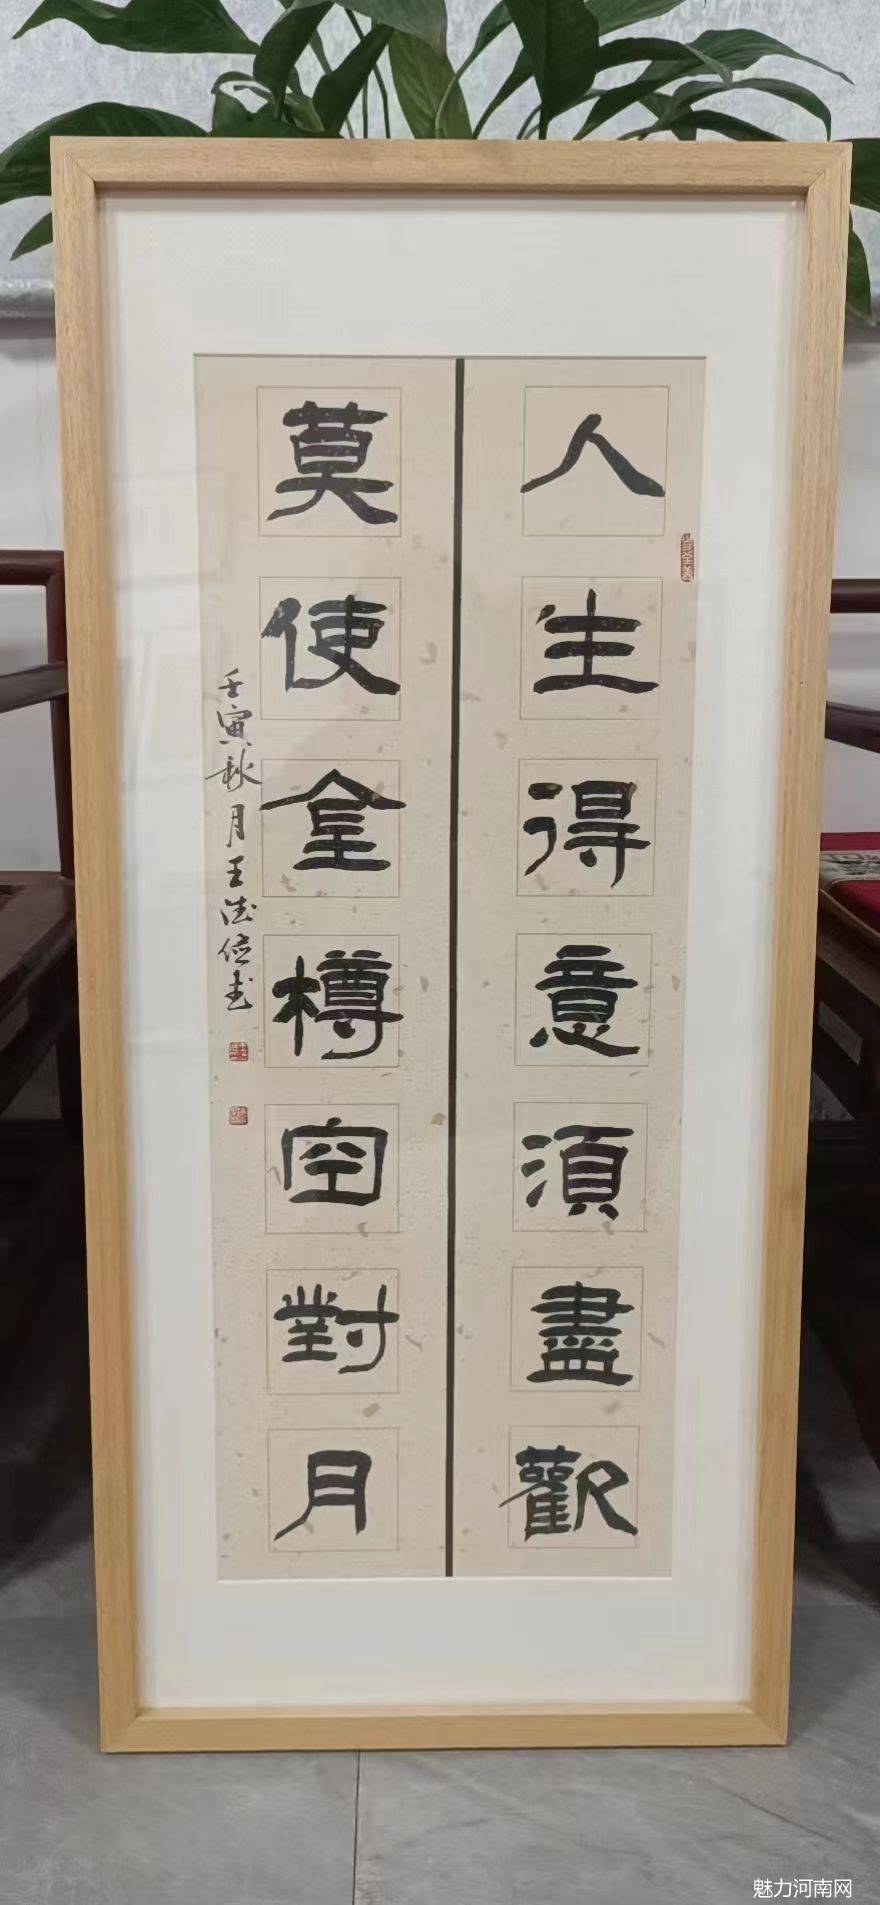 人生得意須盡歡
莫使金樽空對月
壬寅秋月王德书
魅力河南网